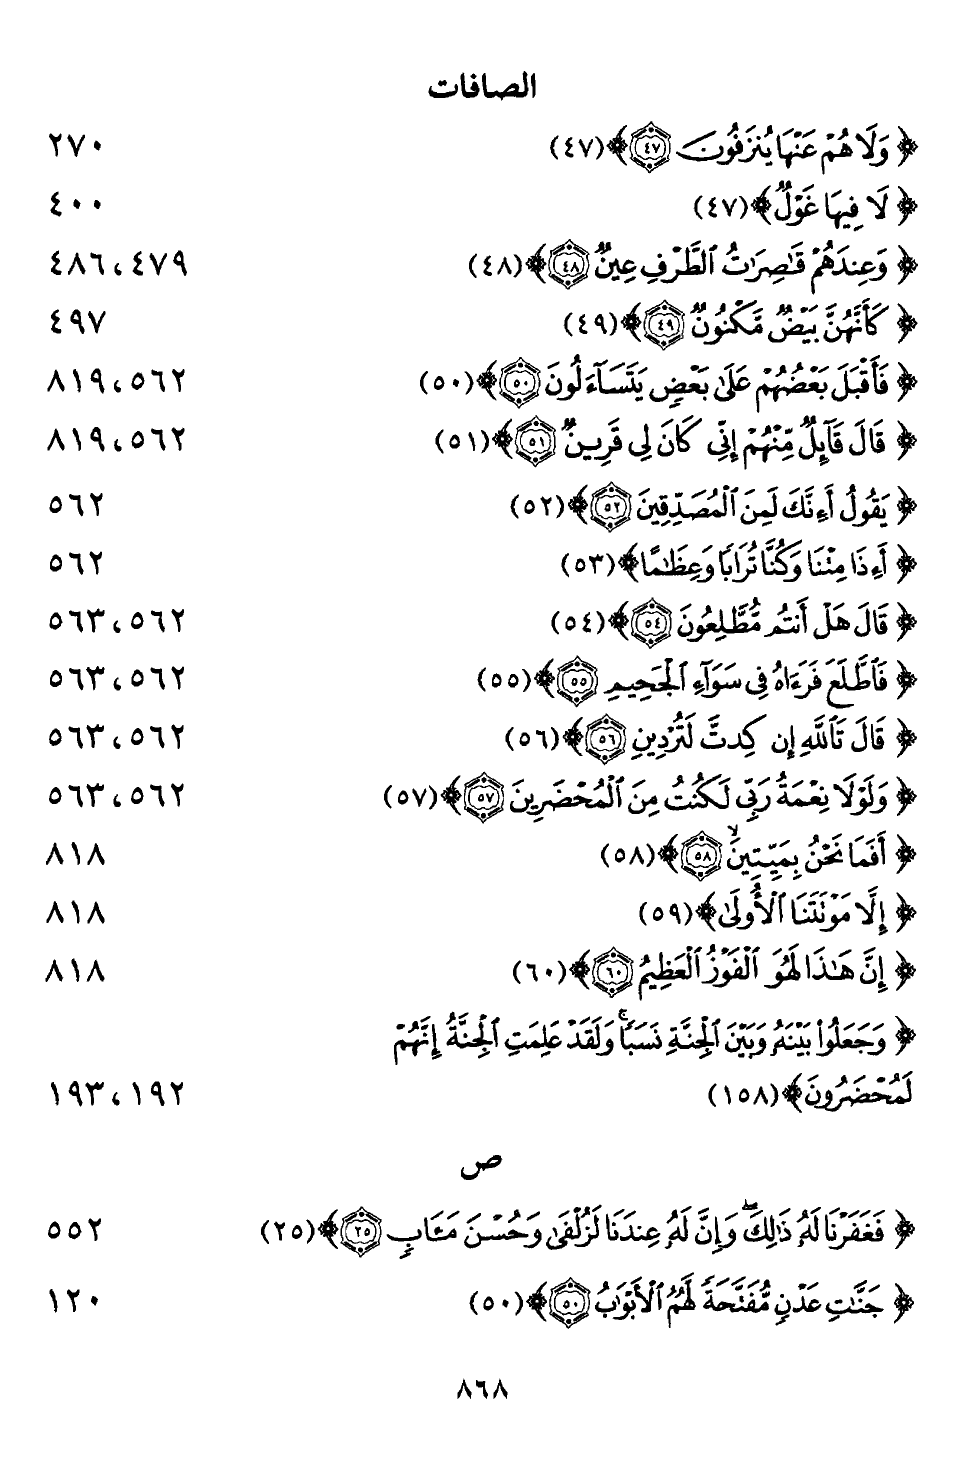 الصافات
﴿ وَلَا هُمْ عَنْهَا يُنزَفُونَ ٤٧ ﴾ (٤٧) ٢٧٠
﴿ لَا فِيهَا غَوْلٌ ﴾ (٤٧) ٤٠٠
﴿ وَعِندَهُمْ قَٰصِرَٰتُ ٱلطَّرْفِ عِينٌ ٤٨ ﴾ (٤٨) ٤٧٩، ٤٨٦
﴿ كَأَنَّهُنَّ بَيْضٌ مَّكْنُونٌ ٤٩ ﴾ (٤٩) ٤٩٧
﴿ فَأَقْبَلَ بَعْضُهُمْ عَلَىٰ بَعْضٍ يَتَسَآءَلُونَ ٥٠ ﴾ (٥٠) ٥٦٢، ٨١٩
﴿ قَالَ قَآئِلٌ مِّنْهُمْ إِنِّى كَانَ لِى قَرِينٌ ٥١ ﴾ (٥١) ٥٦٢، ٨١٩
﴿ يَقُولُ أَءِنَّكَ لَمِنَ ٱلْمُصَدِّقِينَ ٥٢ ﴾ (٥٢) ٥٦٢
﴿ أَءِذَا مِتْنَا وَكُنَّا تُرَابًا وَعِظَٰمًا ﴾ (٥٣) ٥٦٢
﴿ قَالَ هَلْ أَنتُم مُّطَّلِعُونَ ٥٤ ﴾ (٥٤) ٥٦٢، ٥٦٣
﴿ فَٱطَّلَعَ فَرَءَاهُ فِى سَوَآءِ ٱلْجَحِيمِ ٥٥ ﴾ (٥٥) ٥٦٢، ٥٦٣
﴿ قَالَ تَٱللَّهِ إِن كِدتَّ لَتُرْدِينِ ٥٦ ﴾ (٥٦) ٥٦٢، ٥٦٣
﴿ وَلَوْلَا نِعْمَةُ رَبِّى لَكُنتُ مِنَ ٱلْمُحْضَرِينَ ٥٧ ﴾ (٥٧) ٥٦٢، ٥٦٣
﴿ أَفَمَا نَحْنُ بِمَيِّتِينَ ٥٨ ﴾ (٥٨) ٨١٨
﴿ إِلَّا مَوْتَتَنَا ٱلْأُولَىٰ ﴾ (٥٩) ٨١٨
﴿ إِنَّ هَٰذَا لَهُوَ ٱلْفَوْزُ ٱلْعَظِيمُ ٦٠ ﴾ (٦٠) ٨١٨
﴿ وَجَعَلُوا۟ بَيْنَهُۥ وَبَيْنَ ٱلْجِنَّةِ نَسَبًا ۚ وَلَقَدْ عَلِمَتِ ٱلْجِنَّةُ إِنَّهُمْ
لَمُحْضَرُونَ ﴾ (١٥٨) ١٩٢، ١٩٣
ص
﴿ فَغَفَرْنَا لَهُۥ ذَٰلِكَ ۖ وَإِنَّ لَهُۥ عِندَنَا لَزُلْفَىٰ وَحُسْنَ مَـَٔابٍ ٢٥ ﴾ (٢٥) ٥٥٢
﴿ جَنَّٰتِ عَدْنٍ مُّفَتَّحَةً لَّهُمُ ٱلْأَبْوَٰبُ ٥٠ ﴾ (٥٠) ١٢٠
٨٦٨